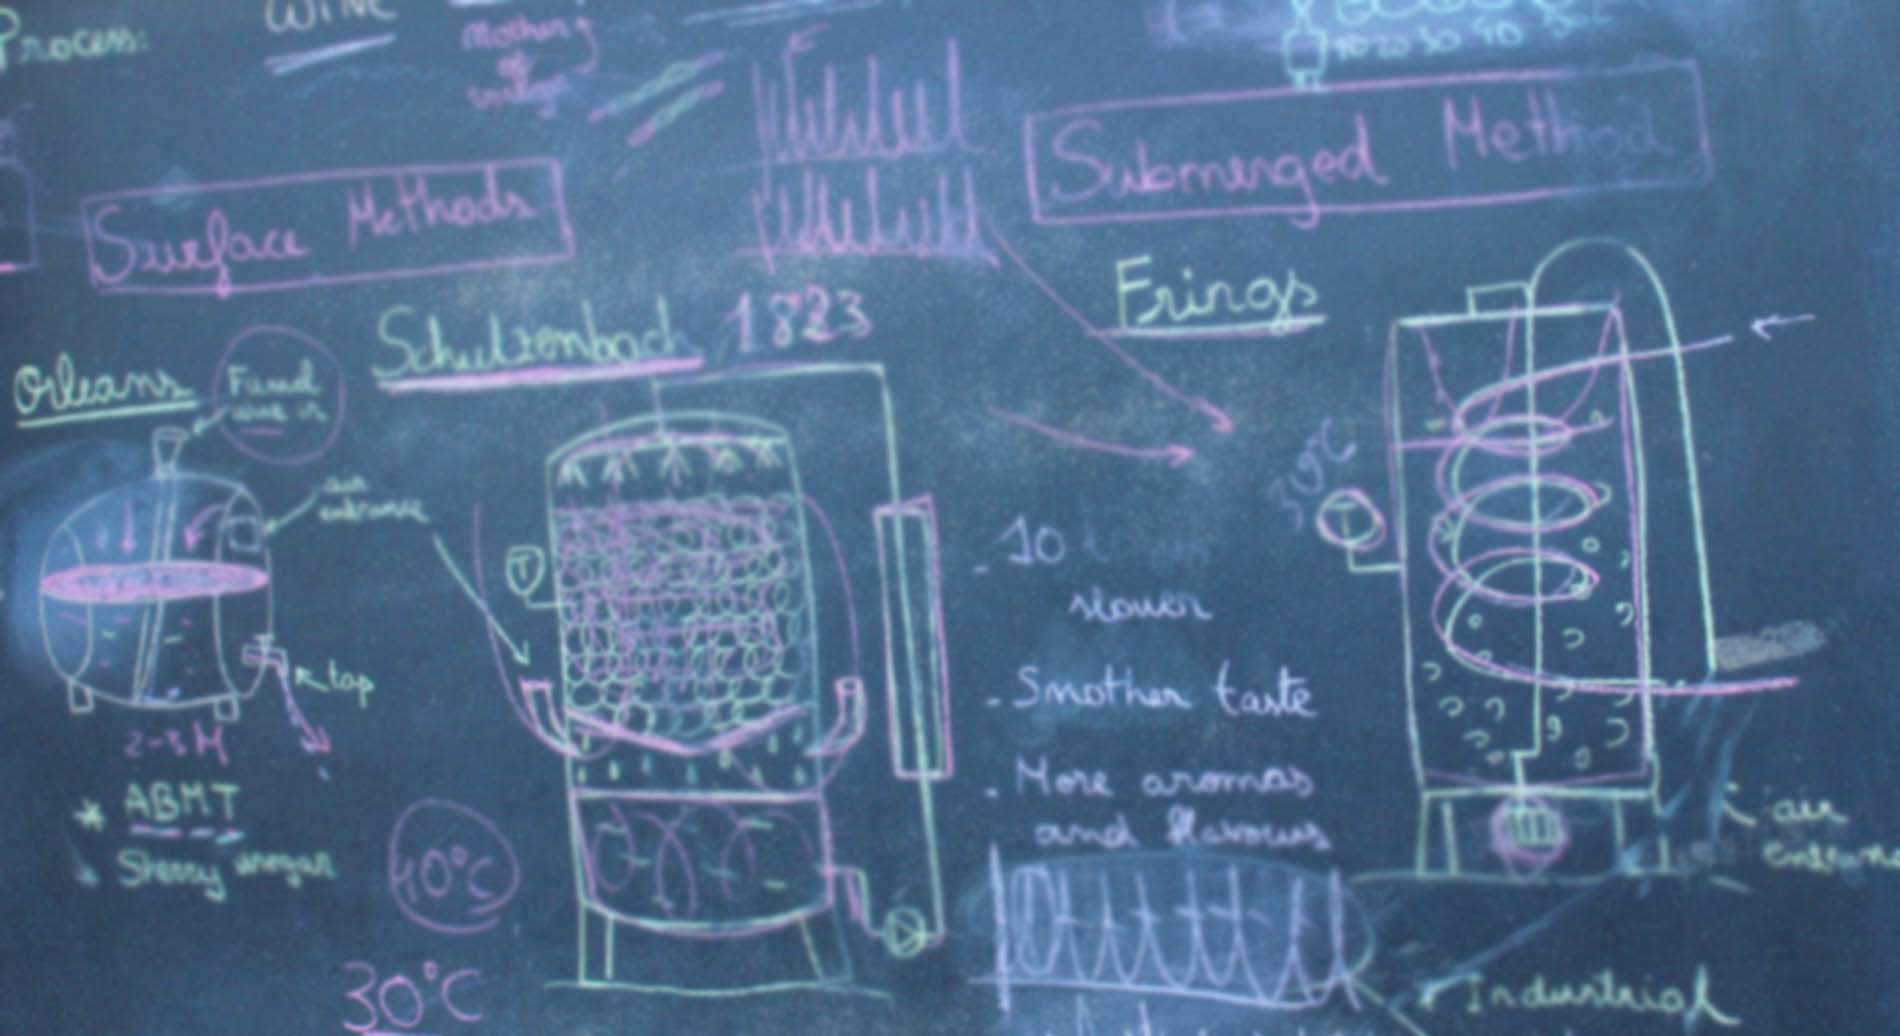 Process:
WINE
Mother
of
vinegar
10 20 30 40 50
Surface Methods
Submerged Method
Schutzenbach 1823
Frings
Orleans
Fined
wine in
air
entrance
T
30°C
T
- 10
slower
tap
- Smother taste
2-3 M
- More aromas
and flavours
* ABMT
Sherry vinegar
air
entrance
40°C
30°C
Industrial